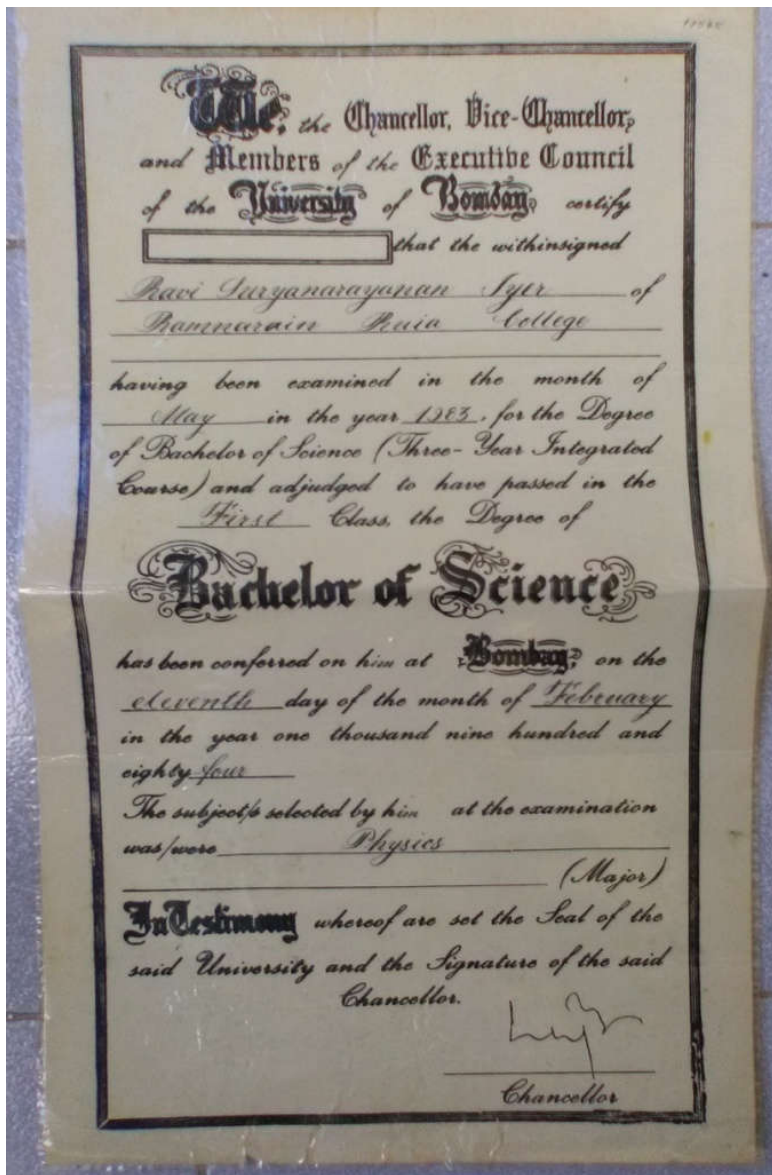 We, the Chancellor, Vice-Chancellor,
and Members of the Executive Council
of the University of Bombay, certify
that the withinsigned
Ravi Suryanarayanan Iyer of
Ramnarain Ruia College
having been examined in the month of
May in the year 1983, for the Degree
of Bachelor of Science (Three-Year Integrated
Course) and adjudged to have passed in the
First Class, the Degree of
Bachelor of Science
has been conferred on him at Bombay, on the
eleventh day of the month of February
in the year one thousand nine hundred and
eighty four
The subject/s selected by him at the examination
was/were Physics
(Major)
In Testimony whereof are set the Seal of the
said University and the Signature of the said
Chancellor.
Chancellor